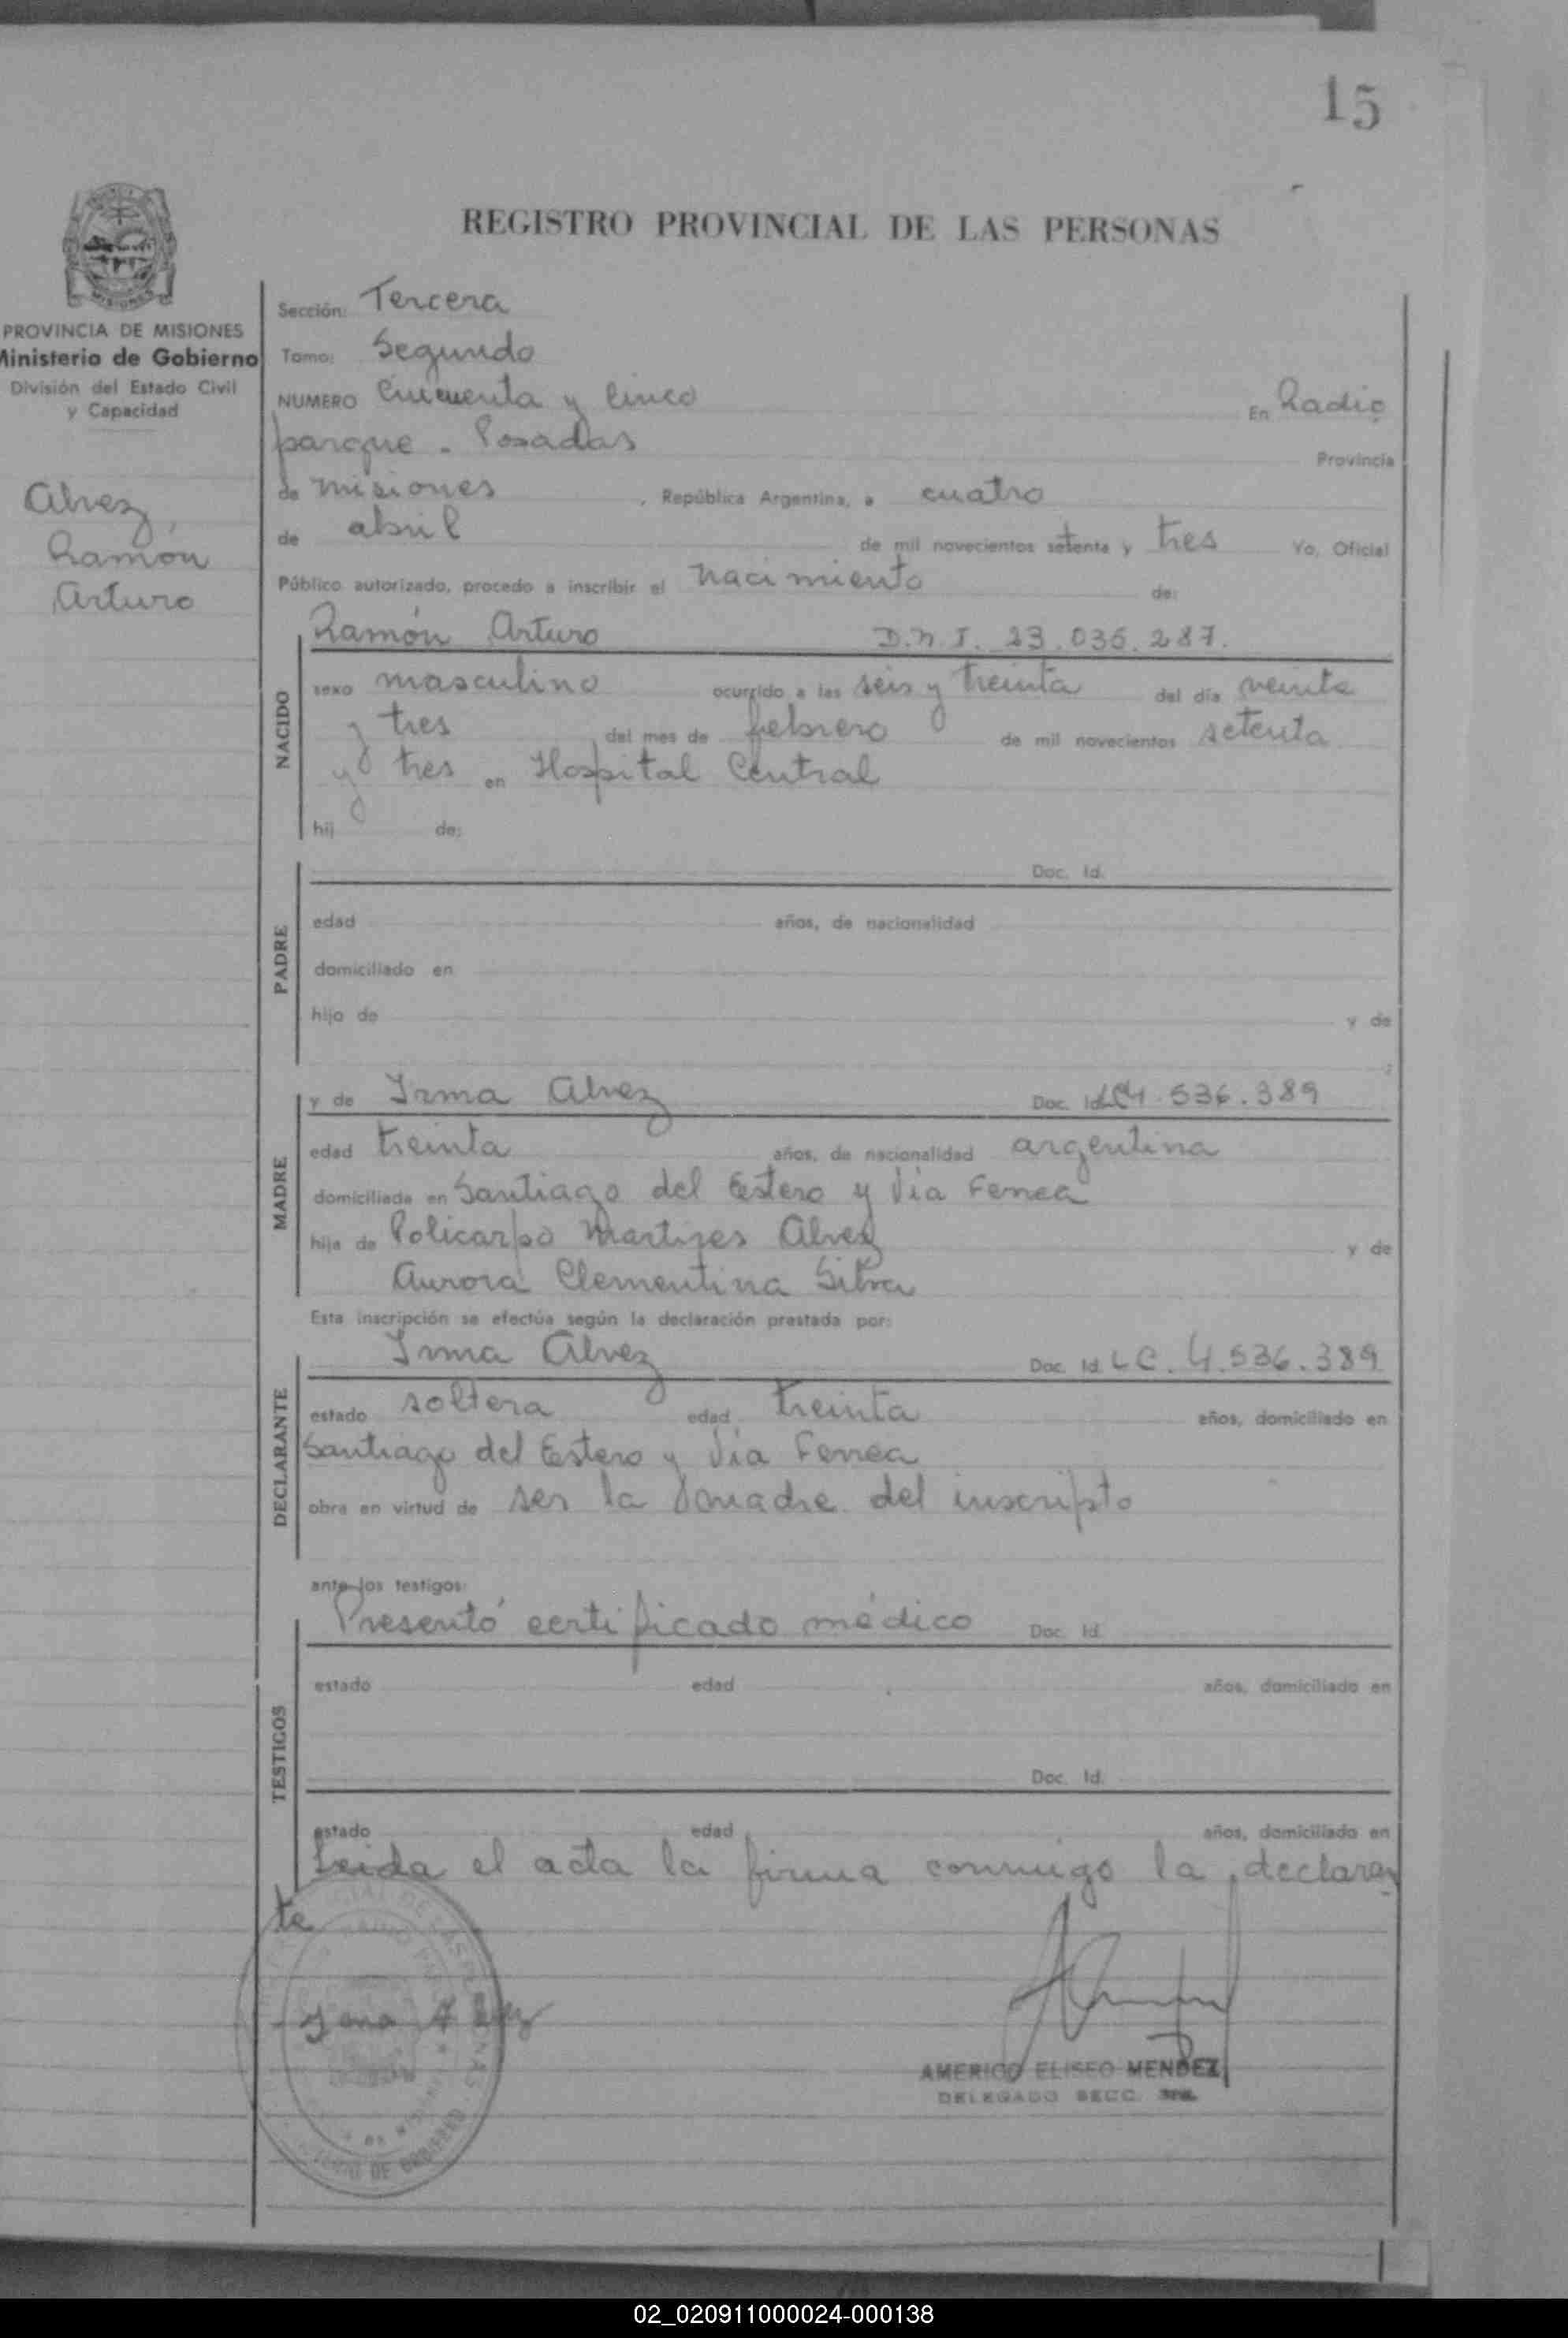 15
REGISTRO PROVINCIAL DE LAS PERSONAS
PROVINCIA DE MISIONES
Ministerio de Gobierno
División del Estado Civil
y Capacidad
Alvez,
Ramón
Arturo
Sección: Tercera
Tomo: Segundo
NUMERO Cincuenta y Cinco En Radio
parque - Posadas Provincia
de misiones , República Argentina, a cuatro
de abril de mil novecientos setenta y tres Yo, Oficial
Público autorizado, procedo a inscribir el nacimiento de:
Ramón Arturo D.N.I. 23.036.287.
NACIDO
sexo masculino ocurrido a las seis y treinta del día veinte
y tres del mes de febrero de mil novecientos setenta
y tres en Hospital Central
hij de:
PADRE
Doc. Id.
edad años, de nacionalidad
domiciliado en
hijo de y de
MADRE
y de Irma Alvez Doc. Id. LC 4.536.389
edad treinta años, de nacionalidad argentina
domiciliada en Santiago del Estero y Vía Ferrea
hija de Policarpo Martires Alvez y de
Aurora Clementina Silva
Esta inscripción se efectúa según la declaración prestada por:
DECLARANTE
Irma Alvez Doc. Id. LC. 4.536.389
estado soltera edad treinta años, domiciliado en
Santiago del Estero y Vía Ferrea
obra en virtud de ser la madre del inscripto
ante los testigos:
TESTIGOS
Presentó certificado médico Doc. Id.
estado edad años, domiciliado en
Doc. Id.
estado edad años, domiciliado en
Leida el acta la firma conmigo la declaran
te
AMERICO ELISEO MENDEZ
DELEGADO SECC. 3ra.
02_020911000024-000138